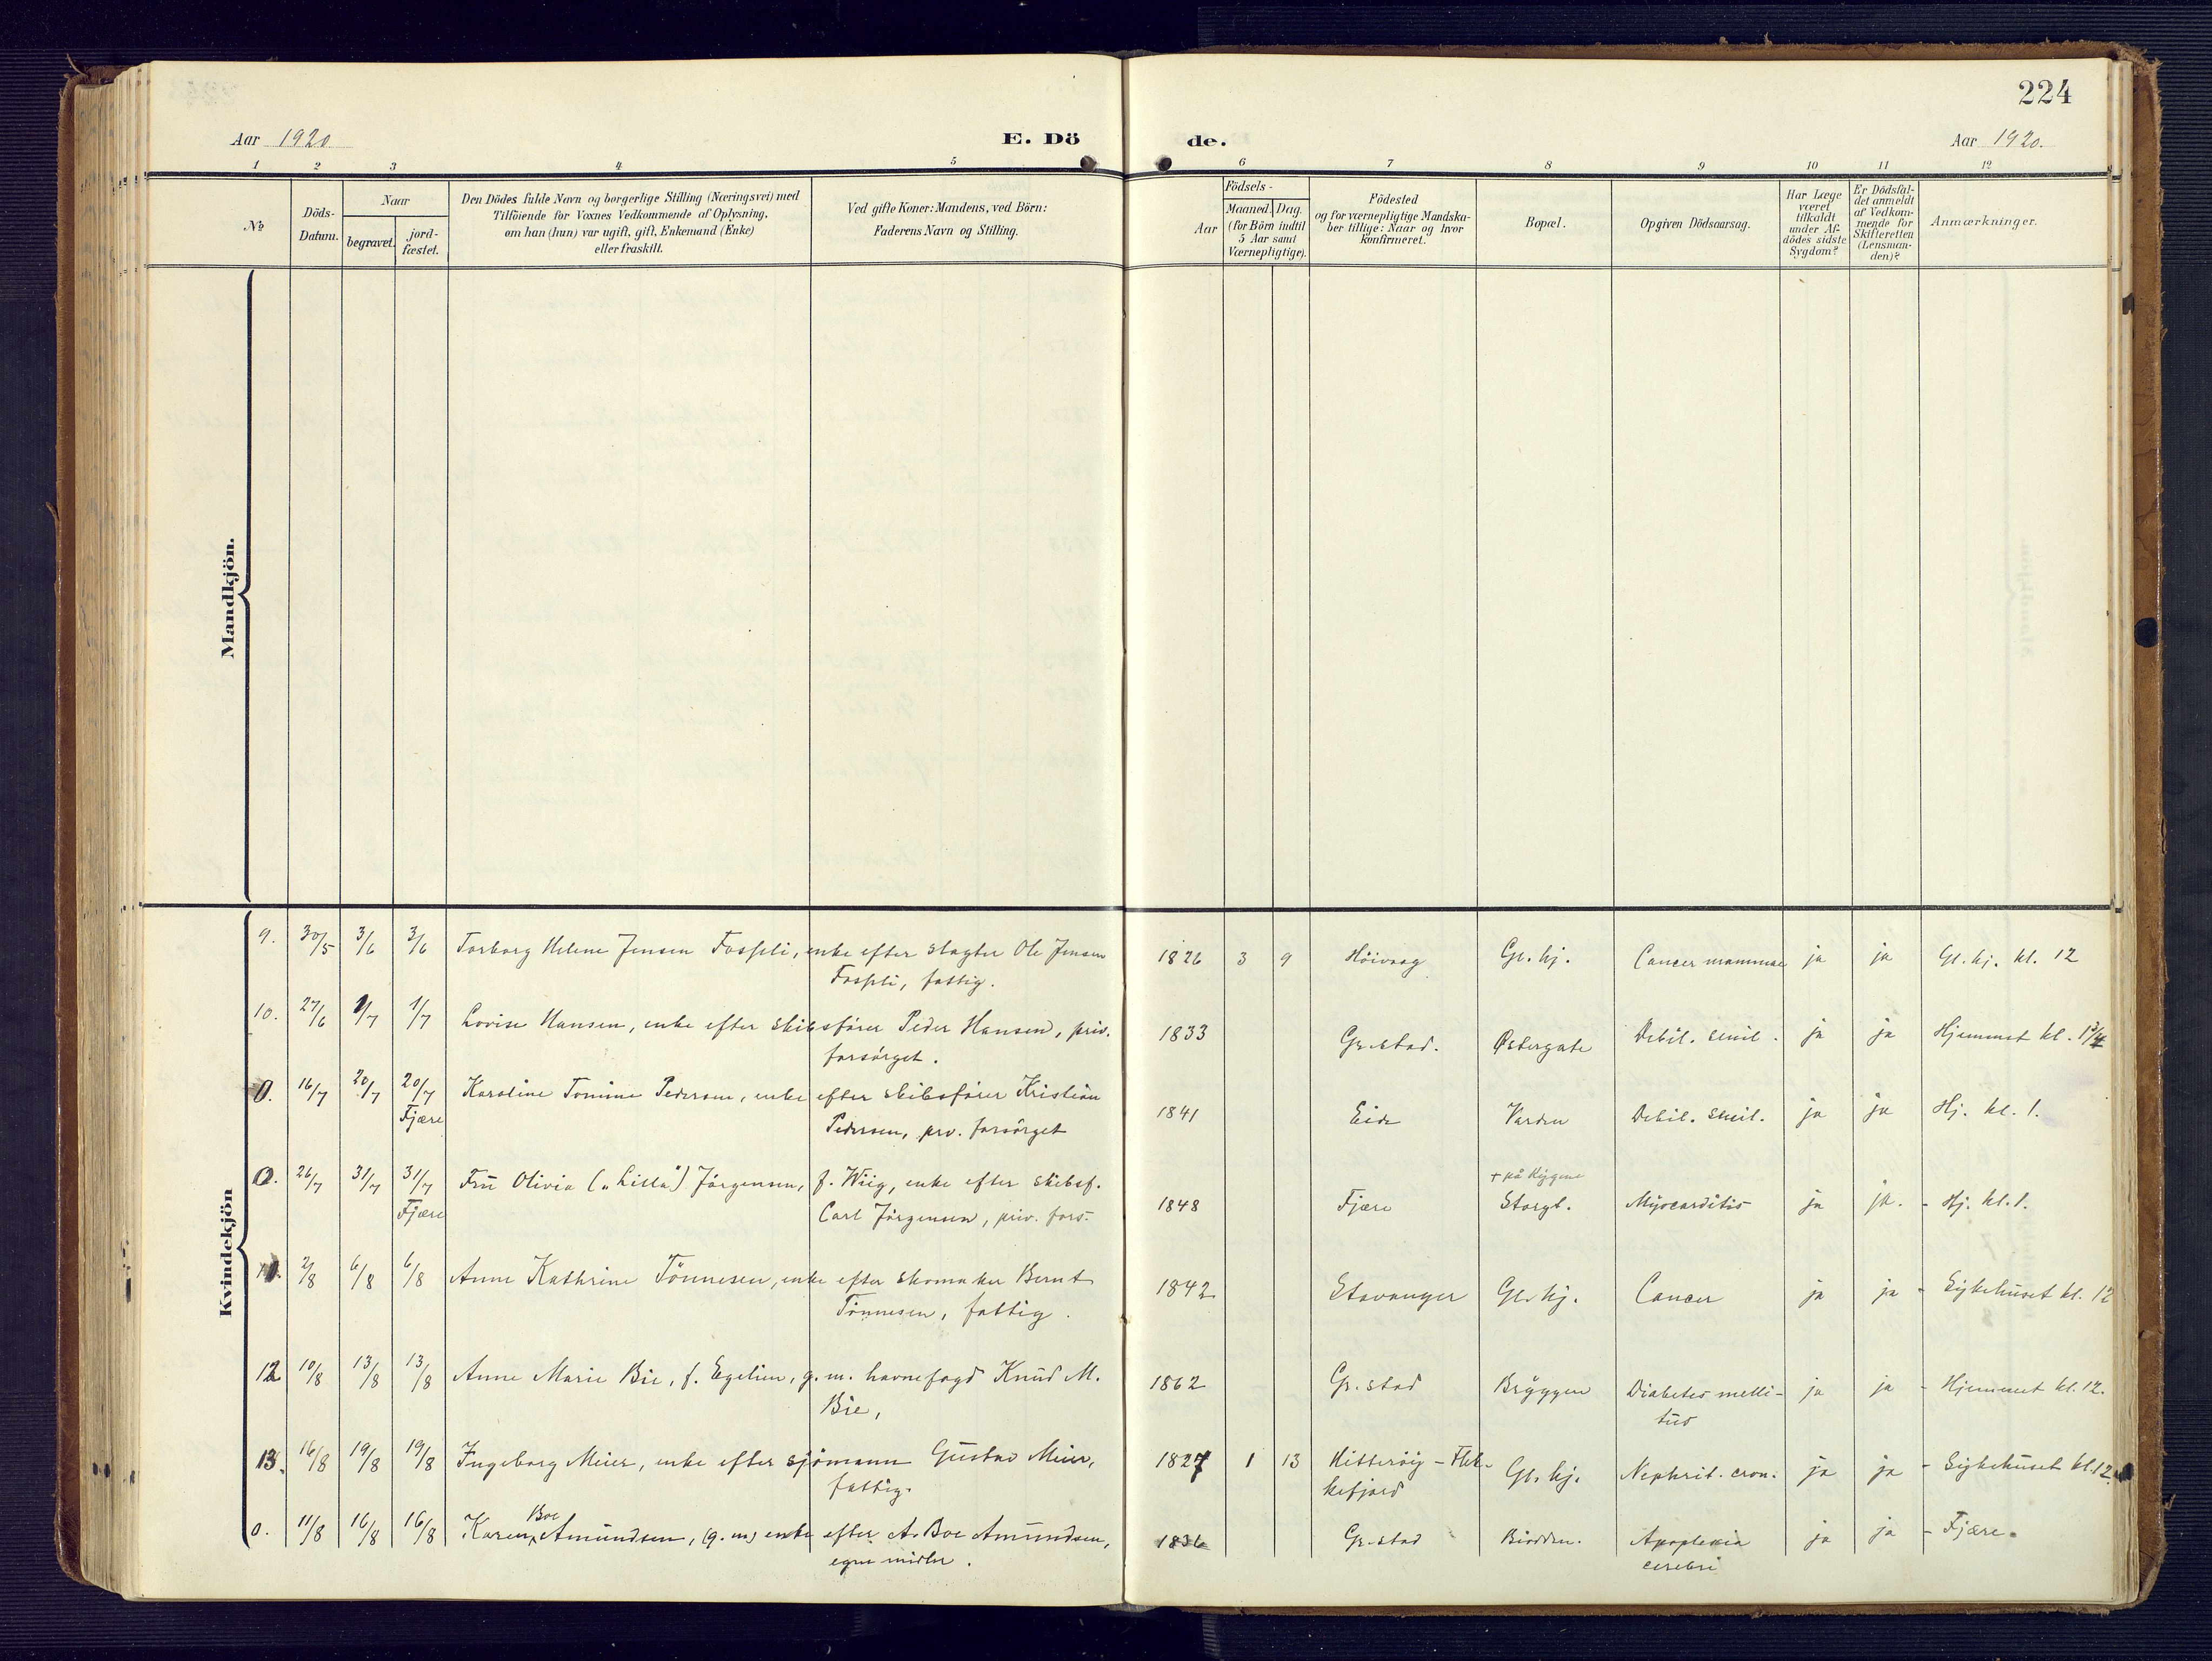 224
Aar 1920
E. Dö
de.
Aar 1920.
1 2 3 4 5 6 7 8 9 10 11 12
No
Döds-
Datum.
Naar
begravet.
jord-
fæstet.
Den Dödes fulde Navn og borgerlige Stilling (Næringsvei) med
Tilföiende for Voxnes Vedkommende af Oplysning,
om han (hun) var ugift, gift, Enkemand (Enke)
eller fraskilt.
Ved gifte Koner: Mandens, ved Börn:
Faderens Navn og Stilling.
Födsels-
Aar
Maaned. Dag.
(for Börn indtil
5 Aar samt
Værnepligtige).
Födested
og for værnepligtige Mandska-
ber tillige: Naar og hvor
konfirmeret.
Bopæl.
Opgiven Dödsaarsag.
Har Læge
været
tilkaldt
under Af-
dödes sidste
Sygdom?
Er Dödsfal-
det anmeldt
af Vedkom-
mende for
Skifteretten
(Lensman-
den)?
Anmærkninger.
Mandkjön.
Kvindekjön
9. 30/5 3/6 3/6 Torborg Helene Jensen Fosseli, enke efter slagter Ole Jensen 1826 3 9 Höivaag Gl. hj. Cancer mammae ja ja Gl. hj. kl. 12
Fosseli, fattig.
10. 27/6 1/7 1/7 Lovise Hansen, enke efter skibsfører Peder Hansen, priv. 1833 Gr.stad. Østergate Debil. senil. ja ja Hjemmet kl. 1 3/4
forsörget.
0. 16/7 20/7 20/7 Karoline Tomine Pedersen, enke efter skibsfører Kristian 1841 Eide Varden Debil. senil. ja ja Hj. kl. 1.
Fjære Pedersen, prv. forsörget
+ på Rygene
0. 26/7 31/7 31/7 Frü Olivia („Lilla") Jörgensen, f. Wiig, enke efter skibsf. 1848 Fjære Storgt. Myocarditis ja ja. - Hj. kl. 1.
Fjære Carl Jörgensen, priv. fors.
2/8 6/8 6/8 Anne Kathrine Tönnesen, enke efter skomaker Bernt 1842 Stavanger Gl. hj. Cancer ja ja - Sykehuset kl. 12
Tönnesen, fattig.
12 10/8 13/8 13/8 Anne Marie Bie, f. Egelien, g. m. havnefogd Knud M. 1862 Gr. stad Bryggen Diabetes melli- ja ja - Hjemmet kl. 12.
Bie, tus
13. 16/8 19/8 19/8 Ingeborg Meier, enke efter sjömann Gustav Meier, 1827 1 13 Hitteröy - Flek- Gl. hj. Nephrit. cron. ja ja - Sykehuset kl. 12.
fattig. kefjord
Boe
0. 11/8 16/8 16/8 Karen Amundsen, (g. m) enke efter A. Boe Amundsen, 1836 Gr.stad Biodden. Apoplexia ja ja - Fjære.
egne midler. cerebri